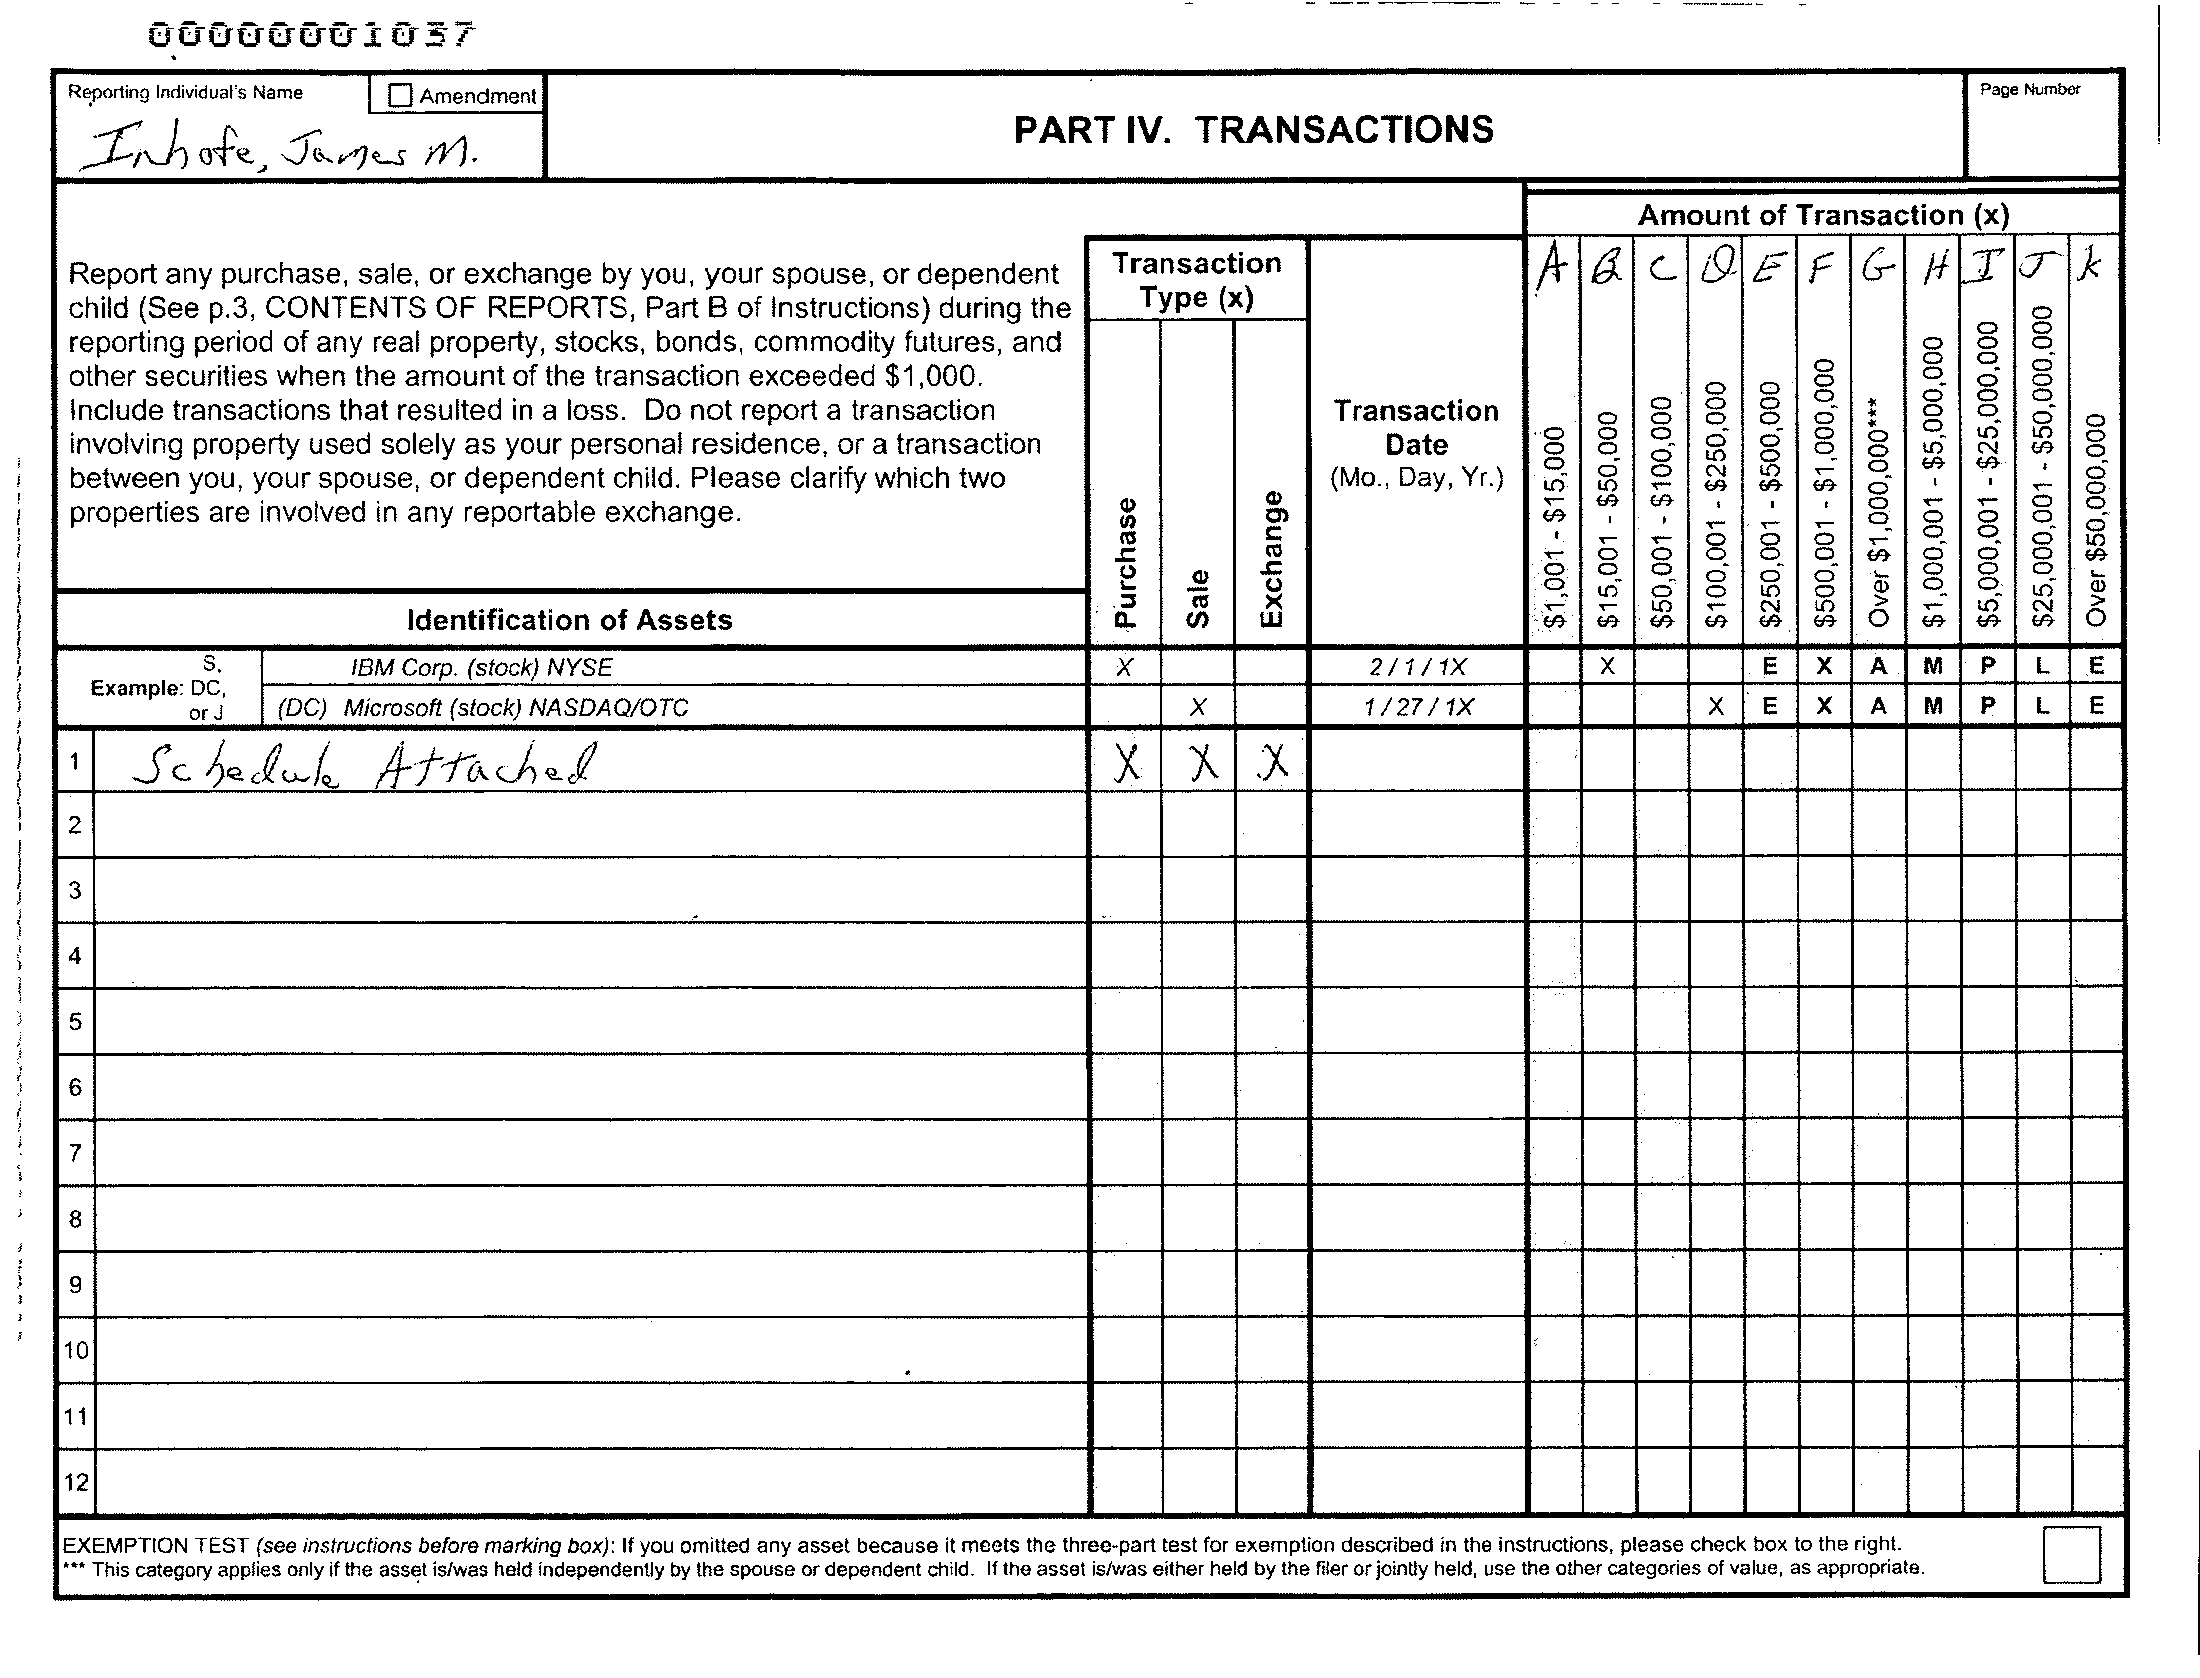 00000001037
Reporting Individual's Name
Amendment
Inhofe, James M.
PART IV. TRANSACTIONS
Page Number
Report any purchase, sale, or exchange by you, your spouse, or dependent
child (See p.3, CONTENTS OF REPORTS, Part B of Instructions) during the
reporting period of any real property, stocks, bonds, commodity futures, and
other securities when the amount of the transaction exceeded $1,000.
Include transactions that resulted in a loss. Do not report a transaction
involving property used solely as your personal residence, or a transaction
between you, your spouse, or dependent child. Please clarify which two
properties are involved in any reportable exchange.
Identification of Assets
Transaction
Type (x)
Purchase
Sale
Exchange
Transaction
Date
(Mo., Day, Yr.)
Amount of Transaction (x)
A B C D E F G H I J K
$1,001 - $15,000
$15,001 - $50,000
$50,001 - $100,000
$100,001 - $250,000
$250,001 - $500,000
$500,001 - $1,000,000
Over $1,000,000***
$1,000,001 - $5,000,000
$5,000,001 - $25,000,000
$25,000,001 - $50,000,000
Over $50,000,000
Example: S, DC, or J
IBM Corp. (stock) NYSE X 2 / 1 / 1X X E X A M P L E
(DC) Microsoft (stock) NASDAQ/OTC X 1 / 27 / 1X X E X A M P L E
1 Schedule Attached X X X
2
3
4
5
6
7
8
9
10
11
12
EXEMPTION TEST (see instructions before marking box): If you omitted any asset because it meets the three-part test for exemption described in the instructions, please check box to the right.
*** This category applies only if the asset is/was held independently by the spouse or dependent child. If the asset is/was either held by the filer or jointly held, use the other categories of value, as appropriate.